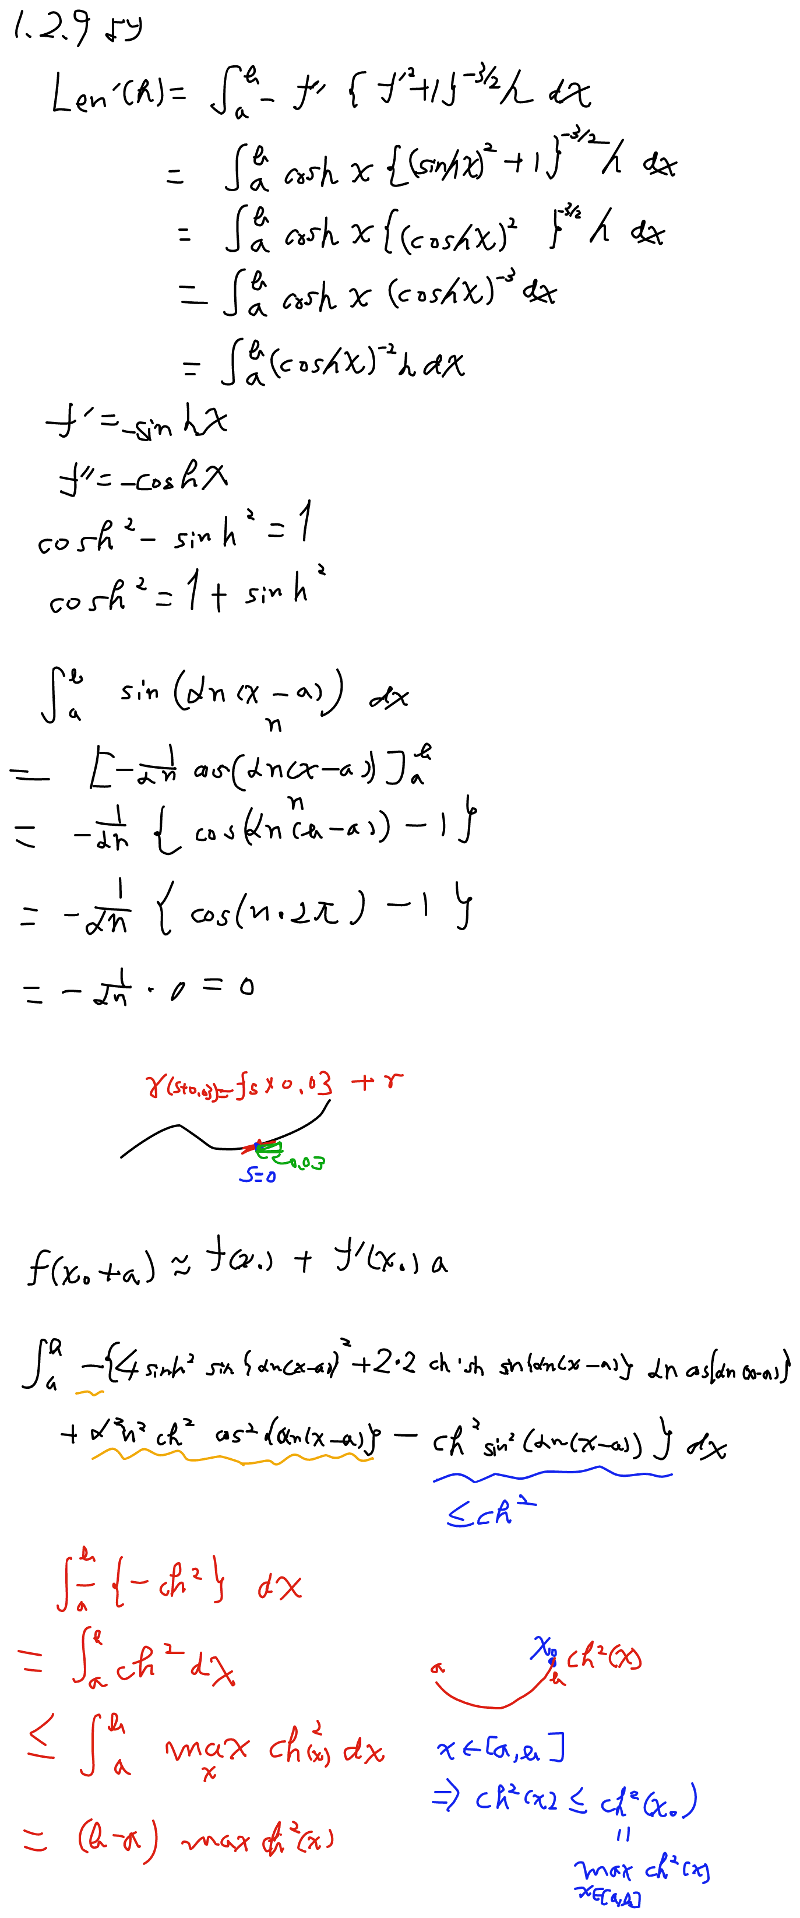 1.2.9
Len'(h) = ∫_a^b - f'' {f'^2+1}^{-3/2} h dx
= ∫_a^b cosh x {(sinhx)^2 + 1}^{-3/2} h dx
= ∫_a^b cosh x {(coshx)^2 }^{-3/2} h dx
= ∫_a^b cosh x (coshx)^{-3} dx
= ∫_a^b (coshx)^{-2} h dx
f' = -sinhx
f'' = -coshx
cosh^2 - sinh^2 = 1
cosh^2 = 1 + sinh^2
∫_a^b sin(αn(x-a)) dx
n
= [-1/αn cos(αn(x-a))]_a^b
n
= -1/αn {cos(αn(b-a)) - 1}
= -1/αn {cos(n·2π) - 1}
= -1/αn · 0 = 0
γ(s+0.03)= fs × 0.03 + r
0.03
s=0
f(x₀+a) ≈ f(x₀) + f'(x₀) a
∫_a^b -{4 sinh^2 sin{αn(x-a)}^2 + 2·2 ch·sh sin{αn(x-a)} αn cos{αn(x-a)}
+ α^2n^2 ch^2 cos^2{αn(x-a)} - ch^2 sin^2(αn(x-a))} dx
≤ ch^2
∫_a^b {-ch^2} dx
= ∫_a^b ch^2 dx
a x₀ b ch^2(x)
≤ ∫_a^b max_x ch^2(x) dx
x ∈ [a,b]
⇒ ch^2(x) ≤ ch^2(x₀)
= (b-a) max ch^2(x)
||
max_{x∈[a,b]} ch^2(x)